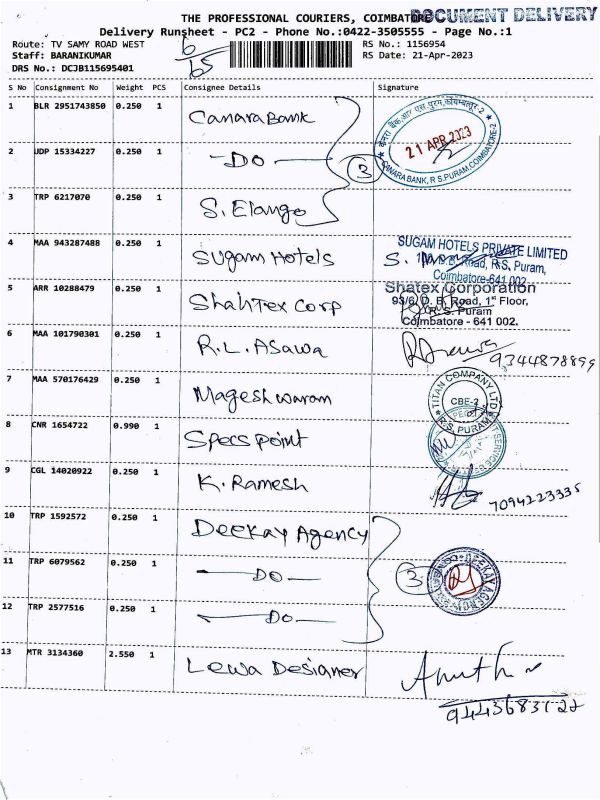 THE PROFESSIONAL COURIERS, COIMBATORE
DOCUMENT DELIVERY
Delivery Runsheet - PC2 - Phone No.:0422-3505555 - Page No.:1
Route: TV SAMY ROAD WEST
RS No.: 1156954
Staff: BARANIKUMAR
RS Date: 21-Apr-2023
DRS No.: DCJB115695401
S No Consignment No Weight PCS Consignee Details Signature
1 BLR 2951743850 0.250 1 Canara Bank
21 APR 2023
CANARA BANK, R S PURAM, COIMBATORE-2
2 UDP 15334227 0.250 1 -DO- 3
3 TRP 6217070 0.250 1 S. Elango
4 MAA 943287488 0.250 1 Sugam Hotels
SUGAM HOTELS PRIVATE LIMITED
Road, R.S. Puram,
Coimbatore-641 002
5 ARR 10288479 0.250 1 Shahtex Corp
Shatex Corporation
93/6, D. B. Road, 1st Floor,
R. S. Puram
Coimbatore - 641 002.
6 MAA 101790301 0.250 1 R.L. Asawa
9344878899
7 MAA 570176429 0.250 1 Mageshwaram
TITAN COMPANY LTD
CBE-2
R.S. PURAM
8 CNR 1654722 0.990 1 Specs point
9 CGL 14020922 0.250 1 K. Ramesh
7094223335
10 TRP 1592572 0.250 1 Deekay Agency
11 TRP 6079562 0.250 1 -DO- 3
DEEKAY AGENCY
12 TRP 2577516 0.250 1 -DO-
13 MTR 3134360 2.550 1 Lewa Desianer